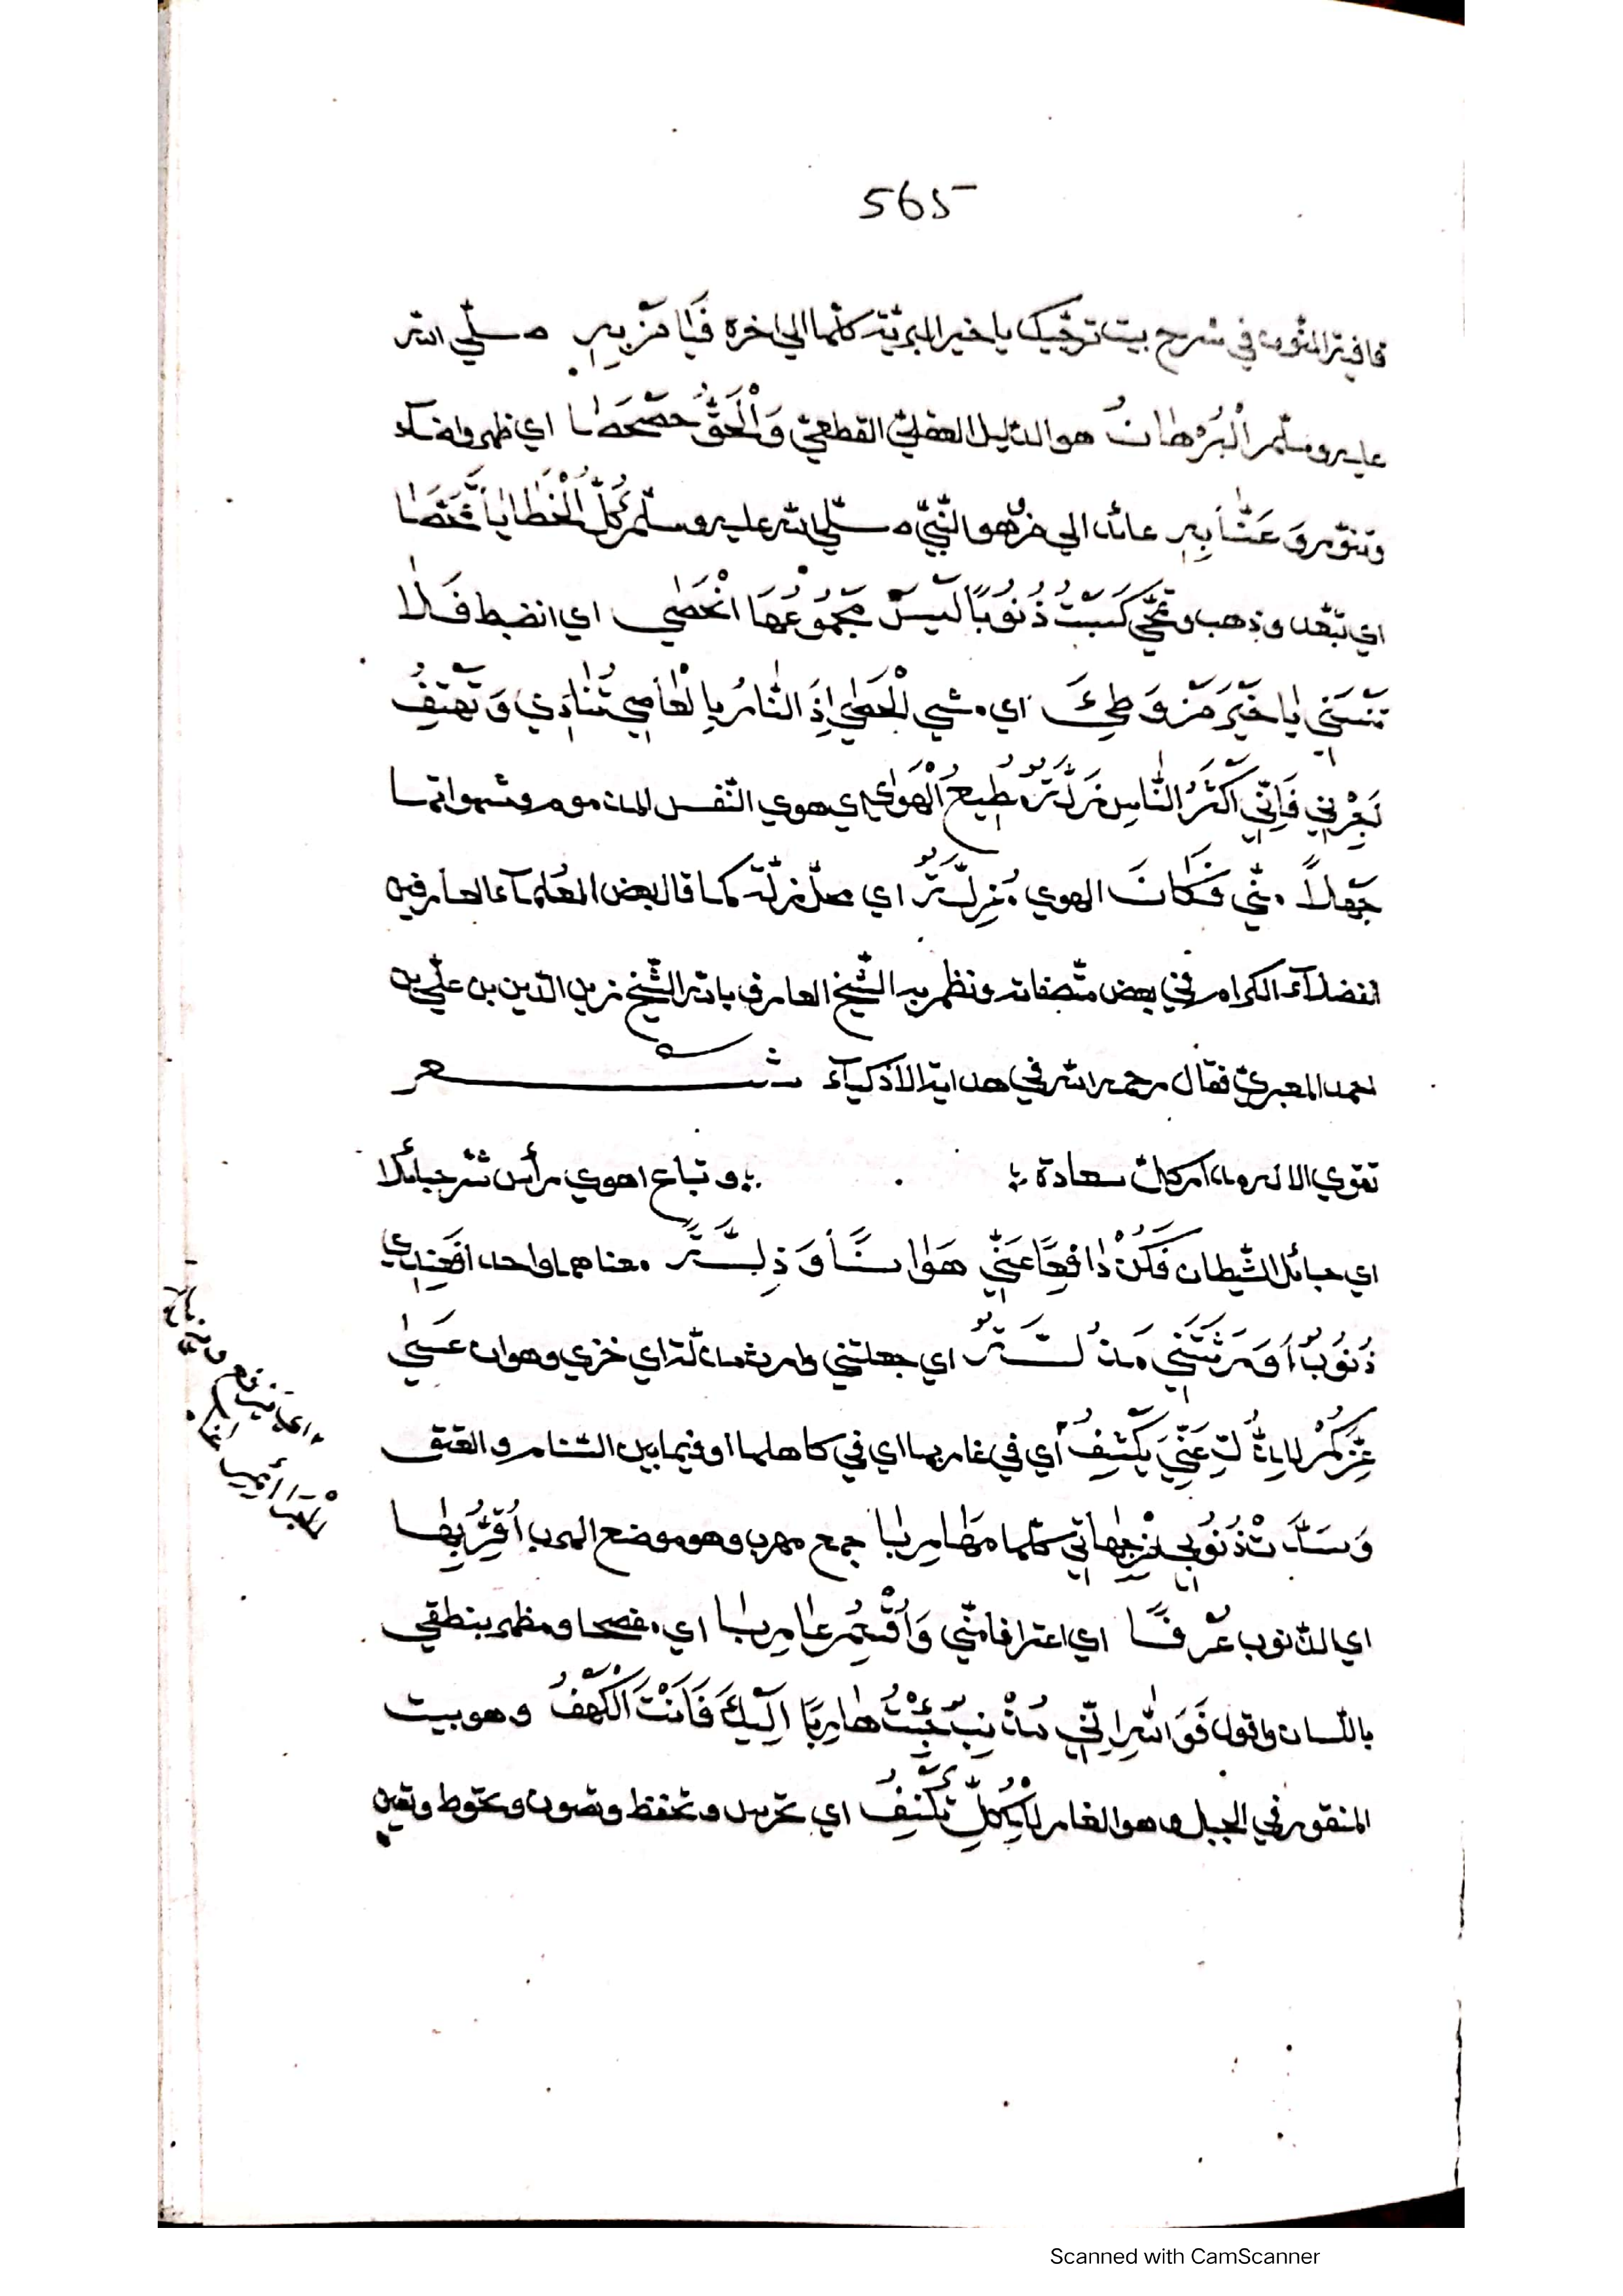 565
قافية المثوب في شرح بيت ترجيك يا خير البرية كلما الي اخره فَيَا مَنْ بِهِ صلّي الله
عليه وسلّم الْبُرْهَانُ هو الدّليل العقليّ القطعيّ وَالْحَقُّ حَصْحَصَا اي ظهر واضآء
وتنوّر وَعَنَّا بِهِ عائد الي من هو النّبيّ صلّي الله عليه وسلّم كُلُّ الْخَطَايَا
اي تبعّد وذهب وتنحّي كَسَبْتُ ذُنُوبًا لَيْسَ مَجْمُوعُهَا انْحَصَي اي انضبط فَلَا
تَنْسَنِي يَا خَيْرَ مَنْ وَطِئَ اي مشي الْحَصَي اِذِ النَّارُ بِالْعَاصِي تُنَادِي وَتَهْتِفُ
اَجِرْنِي فَاِنِّي اَكْثَرُ النَّاسِ زَلَّةً مُطِيعُ الْهَوَي اي هوي النّفس المذموم وشهواتها
جَهْلًا مِنِّي فَكَانَ الهوي مُزِلَّةً اي محلّ زلّة كما قال بعض العلمآء العارفين
الفضلآء الكرام في بعض متّصفاته ونظم به الشّيخ العارف بالله الشّيخ زين الدّين بن عليّ بن
احمد المعبريّ فقال رحمه الله في هداية الاذكيآء شعر
تقوي الاله مدار كل سعادة وتباع اهوي رأس شر حبائلا
اي حبائل الشّيطان فَكُنْ دَافِعًا عَنِّي هَوَانًا وَذِلَّةً معناهما واحد
ذُنُوبٌ اَوْرَثَتْنِي مَذَلَّةً اي جعلتني وارث مذلّة اي خزي وهوان عَسَي
عِزُّكُمْ لِلذُّلِّ عَنِّيَ يَكْشِفُ أي في غاربها اي في كاهلها او فيما بين السّنام والعنق
وَسَدَّتْ ذُنُوبِي عَنْ جِهَاتِي كلها مَهَارِبَا جمع مهرب وهو موضع الهرب اُقِرُّ بِهَا
اي الذّنوب عُرْفًا اي اعترافا منّي وَاُفْهِمُ عَارِبَا اي مفصحا ومظهر بنطقي
باللّسان واقول فَوَاللهِ اِنِّي مُذْنِبٌ جِئْتُ هَارِبًا اِلَيْكَ فَاَنْتَ الْكَهْفُ وهو بيت
المنقور في الجبل وهو الغار لِلْكُلِّ تَكْنِفُ اي تحرس وتحفظ وتصون وتحوط وتعين
Scanned with CamScanner